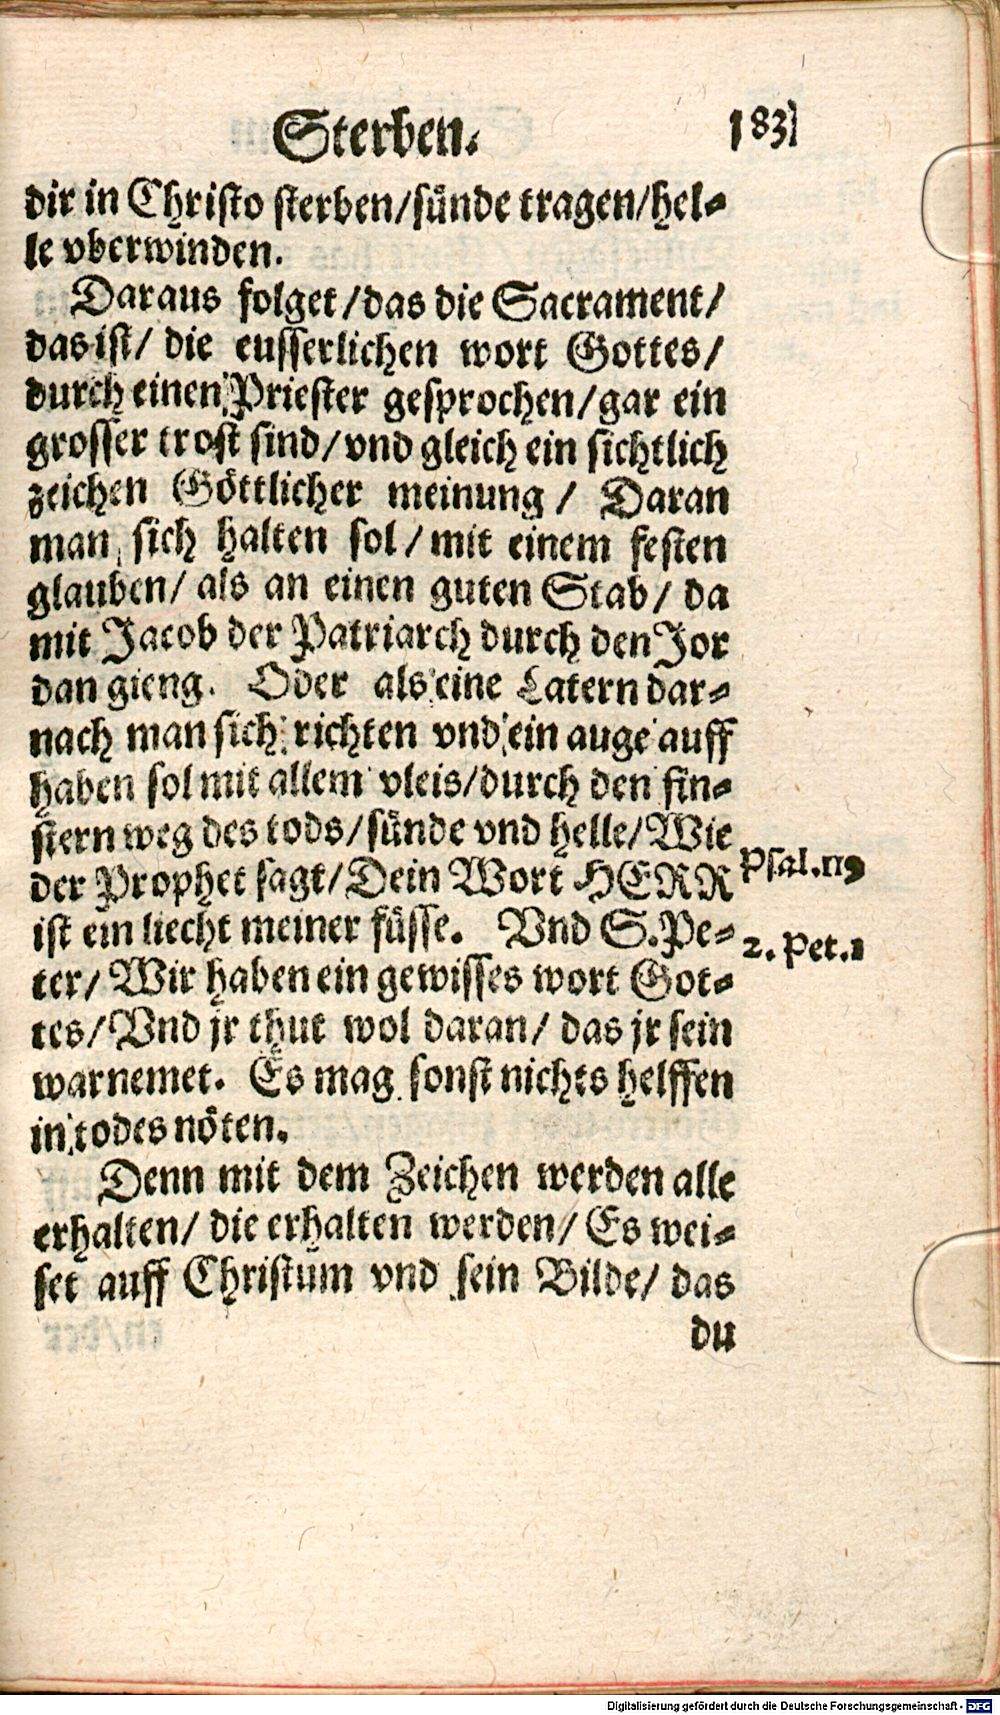 Sterben. 183
dir in Christo sterben/sünde tragen/hel-
le vberwinden.
Daraus folget/das die Sacrament/
das ist/ die eusserlichen wort Gottes/
durch einen Priester gesprochen/gar ein
grosser trost sind/vnd gleich ein sichtlich
zeichen Göttlicher meinung/ Daran
man sich halten sol/mit einem festen
glauben/ als an einen guten Stab/ da
mit Jacob der Patriarch durch den Jor
dan gieng. Oder als eine Latern dar-
nach man sich richten vnd ein auge auff
haben sol mit allem vleis/durch den fin-
stern weg des tods/sünde vnd helle/Wie
der Prophet sagt/Dein Wort HERR Psal.119
ist ein liecht meiner füsse. Vnd S.Pe- 2. Pet.1
ter/ Wir haben ein gewisses wort Got-
tes/Vnd jr thut wol daran/ das jr sein
warnemet. Es mag sonst nichts helffen
in todes nöten.
Denn mit dem Zeichen werden alle
erhalten/ die erhalten werden/ Es wei-
set auff Christum vnd sein Bilde/ das
du
Digitalisierung gefördert durch die Deutsche Forschungsgemeinschaft - DFG